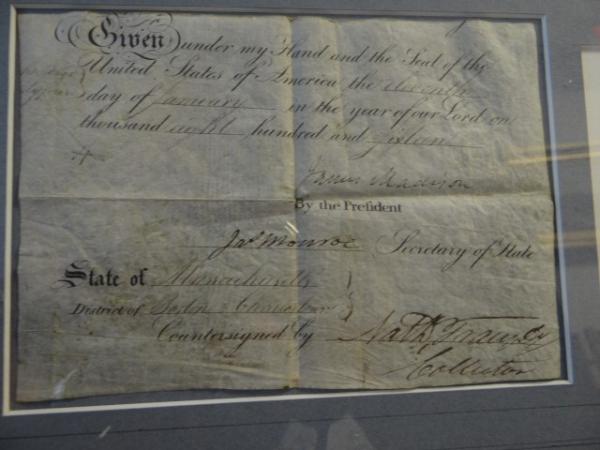 Given under my Hand and the Seal of the
United States of America the eleventh
day of January in the year of our Lord on
thousand eight hundred and sixteen
James Madison
By the President
Jas Monroe Secretary of State
State of Massachusetts
District of Boston & Charlestown
Countersigned by
Collector